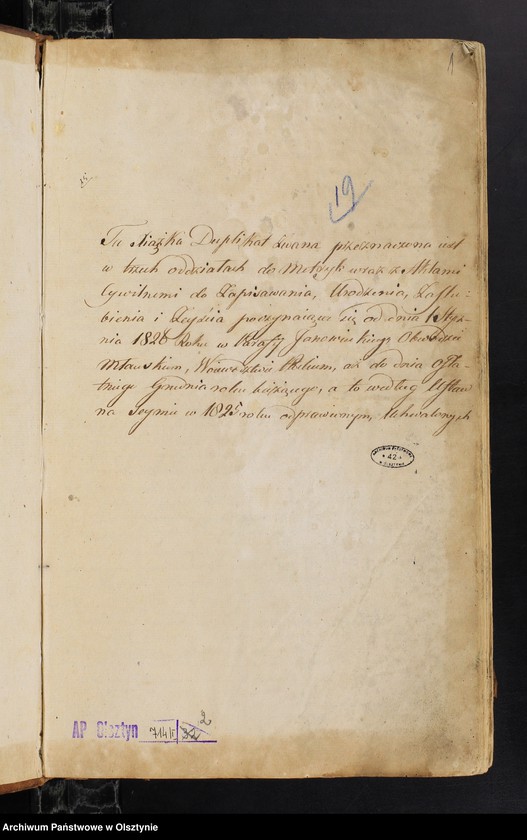 1
19
Ta Xiąźka Duplikat zwana przeznaczona iest
w trzech oddziałach do Metryk wraz z Aktami
Cywilnemi do Zapisywania, Urodzenia, Zaślu-
bienia i Zeyścia poczynaiące się od dnia 1 Stycz-
nia 1826 Roku w Parafii Janowskiey Obwodzie
Mławskim, Woiewództwie Płockim, aż do dnia Osta-
tniego Grudnia roku bieżącego, a to według Ustaw
na Seymie w 1825 roku odprawionym, Uchwalonych
ARCHIWUM PAŃSTWOWE
* 42 *
w OLSZTYNIE
AP Olsztyn 714/I 2
32
Archiwum Państwowe w Olsztynie